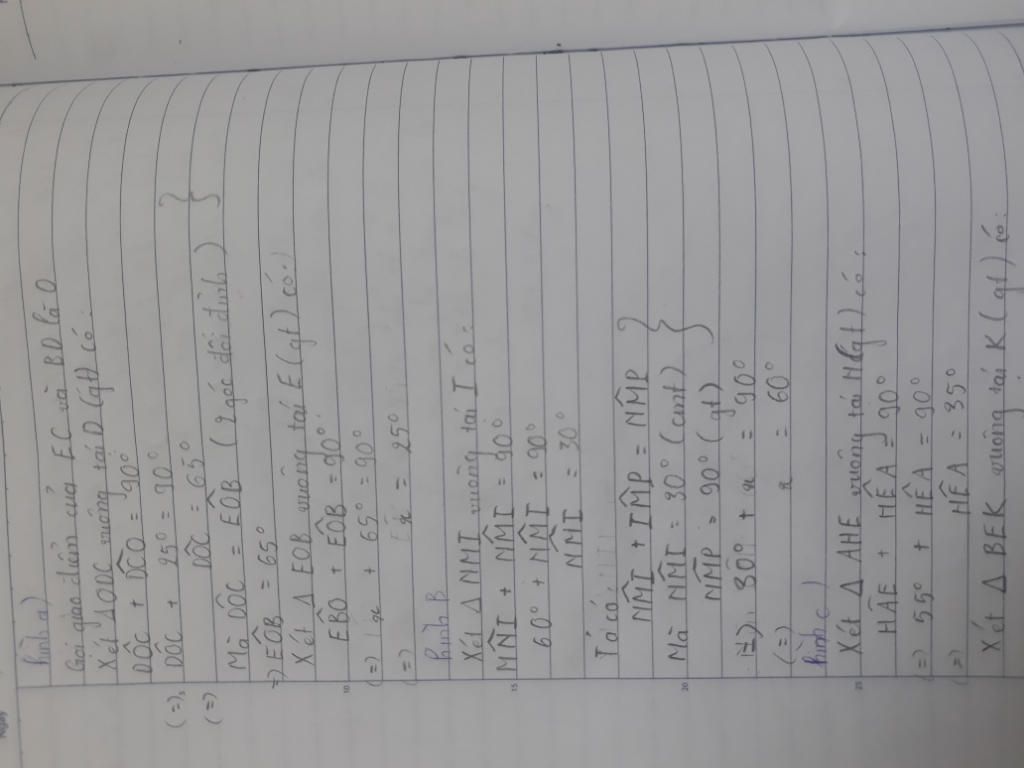 Hình a)
Gọi giao điểm của EC và BD là O
Xét ΔODC vuông tại D (gt) có:
DÔC + DĈO = 90°
(=) DÔC + 25° = 90°
(=) DÔC = 65°
Mà DÔC = EÔB (2 góc đối đỉnh)
=) EÔB = 65°
Xét Δ EOB vuông tại E (gt) có:
EB̂O + EÔB = 90°
(=) x + 65° = 90°
(=) x = 25°
Hình B
Xét Δ NMI vuông tại I có:
MN̂I + NM̂I = 90°
60° + NM̂I = 90°
NM̂I = 30°
Ta có:
NM̂I + IM̂P = NM̂P
Mà NM̂I = 30° (cmt)
NM̂P = 90° (gt)
=) 30° + x = 90°
(=) x = 60°
Hình c)
Xét Δ AHE vuông tại H(gt) có:
HÂE + HÊA = 90°
(=) 55° + HÊA = 90°
(=) HÊA = 35°
Xét Δ BEK vuông tại K (gt) có:
10
15
20
25